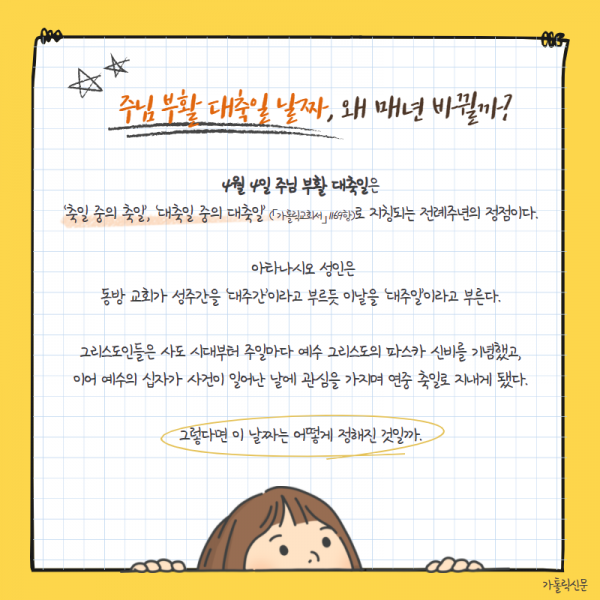 주님 부활 대축일 날짜, 왜 매년 바뀔까?
4월 4일 주님 부활 대축일은
'축일 중의 축일', '대축일 중의 대축일' (「가톨릭교회서」 1169항)로 지칭되는 전례주년의 정점이다.
아타나시오 성인은
동방 교회가 성주간을 '대주간'이라고 부르듯 이날을 '대주일'이라고 부른다.
그리스도인들은 사도 시대부터 주일마다 예수 그리스도의 파스카 신비를 기념했고,
이어 예수의 십자가 사건이 일어난 날에 관심을 가지며 연중 축일로 지내게 됐다.
그렇다면 이 날짜는 어떻게 정해진 것일까.
가톨릭신문